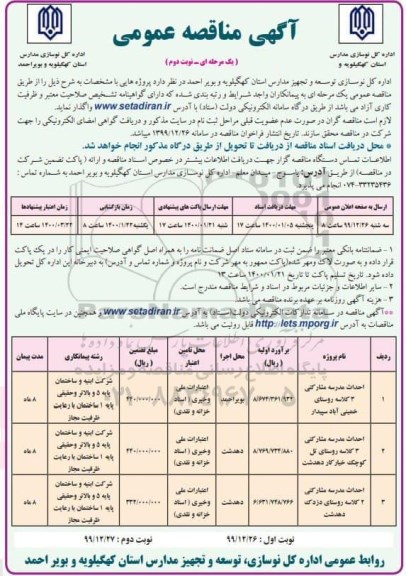 آگهی مناقصه عمومی
( یک مرحله ای ـ نوبت دوم )
اداره کل نوسازی مدارس
استان کهگیلویه و بویراحمد
اداره کل نوسازی مدارس
استان کهگیلویه و
اداره کل نوسازی توسعه و تجهیز مدارس استان کهگیلویه و بویر احمد در نظر دارد پروژه هایی با مشخصات به شرح ذیل را از طریق
مناقصه عمومی یک مرحله ای به پیمانکاران واجد شرایط و رتبه بندی شده که دارای گواهینامه تشخیص صلاحیت معتبر و ظرفیت
کاری آزاد می باشد از طریق درگاه سامانه الکترونیکی دولت (ستاد) با آدرس www.setadiran.ir واگذار نماید.
لازم است مناقصه گران در صورت عدم عضویت قبلی مراحل ثبت نام در سایت مذکور و دریافت گواهی امضای الکترونیکی را جهت
شرکت در مناقصه محقق سازند. تاریخ انتشار فراخوان مناقصه در سامانه ۱۳۹۹/۱۲/۲۶ میباشد
* محل دریافت اسناد مناقصه از دریافت تا تحویل از طریق درگاه مذکور انجام خواهد شد.
اطلاعات تماس دستگاه مناقصه گزار جهت دریافت اطلاعات بیشتر در خصوص اسناد مناقصه و ارائه ( پاکت تضمین شرکت
در مناقصه) از طریق آدرس: یاسوج- میدان معلم- اداره کل نوسازی مدارس استان کهگیلویه و بویر احمد و شماره تماس :
۰۷۴-۳۳۲۳۵۴۳۶ انجام می پذیرد
ارسال به صفحه اعلان عمومی | مهلت دریافت اسناد | مهلت ارسال پاکت های پیشنهادی | زمان بازگشایی | زمان اعتبار پیشنهادها
سه شنبه ۹۹/۱۲/۲۶ ساعت ۸ | پنجشنبه ۱۴۰۰/۰۱/۰۵ ساعت ۱۷ | شنبه ۱۴۰۰/۰۱/۲۱ ساعت ۱۷ | یکشنبه ۱۴۰۰/۱/۲۲ ساعت ۸ | ۱۴۰۰/۰۴/۲۲ ساعت ۱۴
۱ - ضمانتنامه بانکی معتبر را ضمن ثبت در سامانه ستاد اصل ضمانت نامه را به همراه اصل گواهی صلاحیت ایمنی کار را در یک پاکت
قرار داده و به صورت لاک ومهر شده(پاکت ممهور به مهر شرکت و نام پروژه و شماره تماس و آدرس) به دبیرخانه این اداره کل تحویل
داده شود. تاریخ تسلیم پاکت تا تاریخ ۱۴۰۰/۰۱/۲۱ ساعت ۱۳
۲- سایر اطلاعات و جزئیات مربوط در اسناد و شرایط مناقصه مندرج است.
۳- هزینه آگهی روزنامه بر عهده برنده مناقصه می باشد.
**آگهی مناقصه در سامانه تدارکات الکترونیکی دولت(ستاد) به آدرس www.setadiran.ir و همچنین در سایت پایگاه ملی
مناقصات به آدرس http://iets.mporg.ir قابل رؤیت می باشد.
ردیف | نام پروژه | برآورد اولیه (ریال) | محل اجرا | محل تامین اعتبار | مبلغ تضمین (ریال) | رشته پیمانکاری | مدت پیمان
۱ | احداث مدرسه مشارکتی ۳ کلاسه روستای خمینی آباد سپیدار | ۸/۶۷۴/۳۶۱/۹۴۲ | بویراحمد | اعتبارات ملی وخیری ( اسناد خزانه و نقدی) | ۴۴۰/۰۰۰/۰۰۰ | شرکت ابنیه و ساختمان پایه ۵ و بالاتر وحقیقی پایه ۱ ساختمان با رعایت ظرفیت مجاز | ۸ ماه
۲ | احداث مدرسه مشارکتی ۳ کلاسه روستای تل کوچک خیارکار دهدشت | ۸/۷۶۹/۷۳۴/۸۸۰ | دهدشت | اعتبارات ملی وخیری ( اسناد خزانه و نقدی) | ۴۴۰/۰۰۰/۰۰۰ | شرکت ابنیه و ساختمان پایه ۵ و بالاتر وحقیقی پایه ۱ ساختمان با رعایت ظرفیت مجاز | ۸ ماه
۳ | احداث مدرسه مشارکتی ۲ کلاسه روستای دزدک دهدشت | ۶/۶۳۱/۷۴۸/۷۶۶ | دهدشت | اعتبارات ملی وخیری ( اسناد خزانه و نقدی) | ۳۳۴/۰۰۰/۰۰۰ | شرکت ابنیه و ساختمان پایه ۵ و بالاتر وحقیقی پایه ۱ ساختمان با رعایت ظرفیت مجاز | ۸ ماه
نوبت اول : ۹۹/۱۲/۲۶
نوبت دوم : ۹۹/۱۲/۲۷
روابط عمومی اداره کل نوسازی، توسعه و تجهیز مدارس استان کهگیلویه و بویر احمد